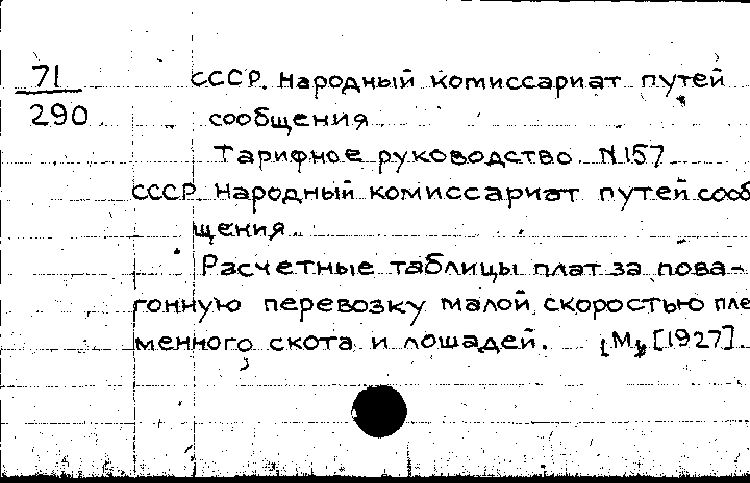 71
290
СССР. Народный комиссариат путей
сообщения
Тарифное руководство N157
СССР Народный комиссариат путей сооб
щения
Расчетные таблицы плат за пова-
гонную перевозку малой скоростью пле
менного скота и лошадей. [М, [1927].